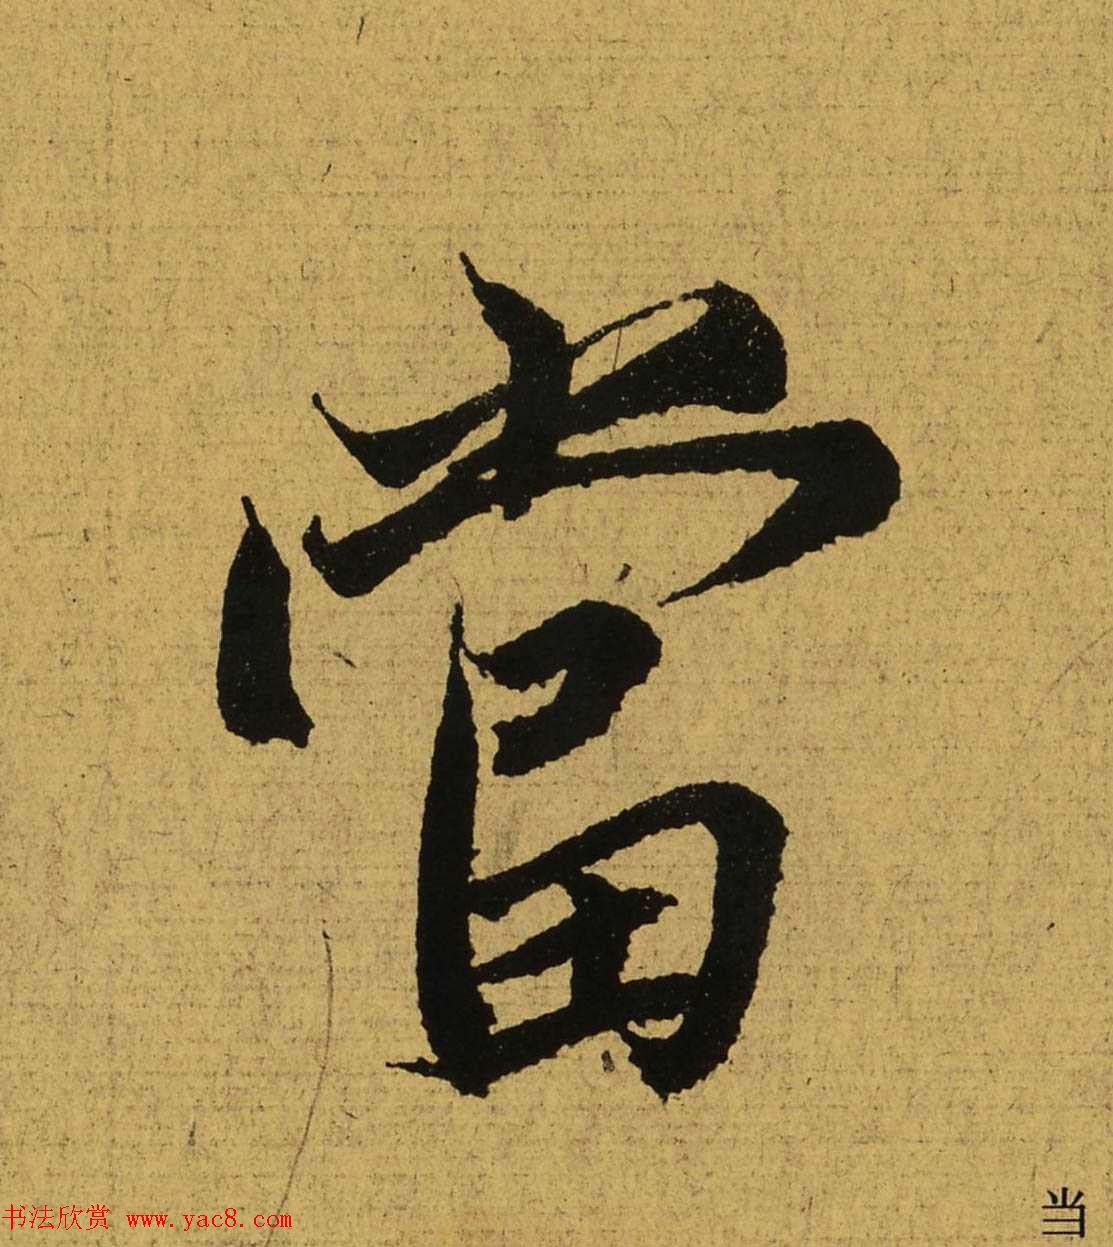 當
当
书法欣赏 www.yac8.com